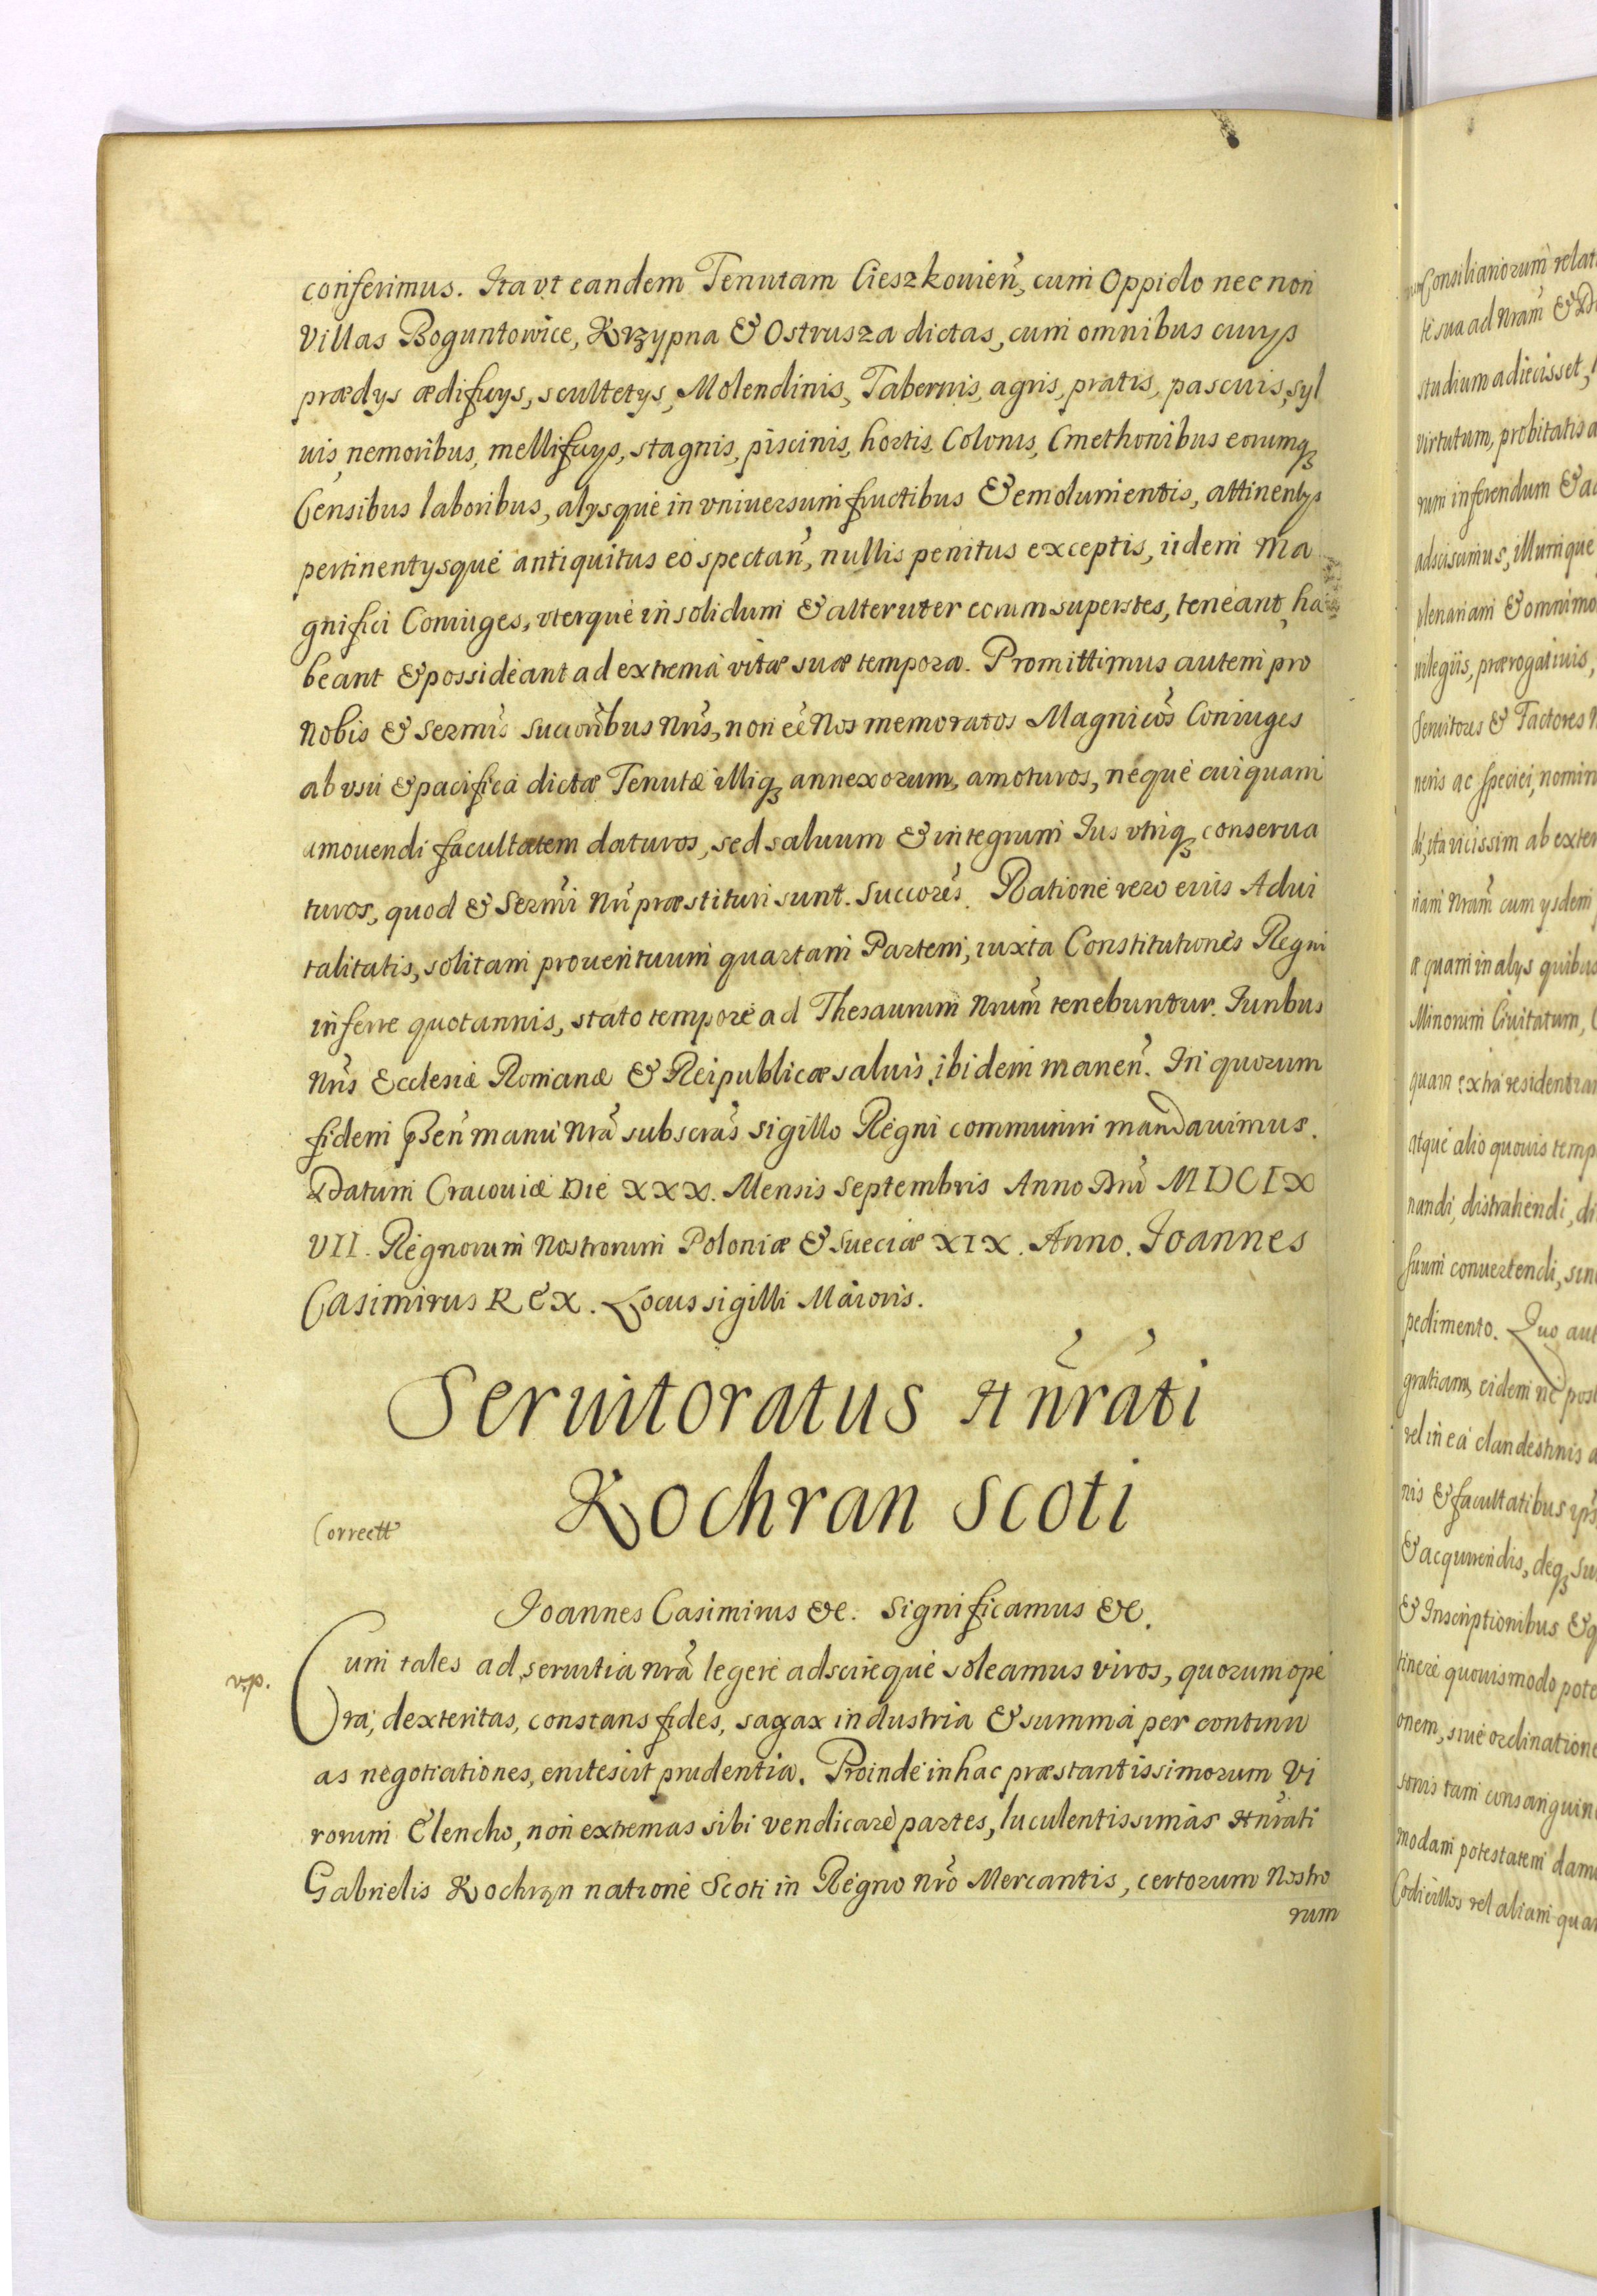 conferimus. Ita vt eandem Tenutam Cieszkouien̄, cum Oppido nec non
Villas Boguntowice, Krzypna & Ostrusza dictas, cum omnibus curijs
prædijs ædificijs, scultetijs, Molendinis, Tabernis, agris, pratis, pascuis, syl
uis nemoribus, mellificijs, stagnis, piscinis, hortis Colonis, Cmethonibus eorumq₃
Censibus laboribus, alijsque in vniuersum fructibus & emolumentis, attinentijs
pertinentijsque antiquitus eo spectan̄, nullis penitus exceptis, iidem Ma
gnifici Coniuges, vterque in solidum & alteruter eorum superstes, teneant, ha
beant & possideant ad extrema vitæ suæ tempora. Promittimus autem pro
Nobis & Sermis̄ Succorībus Nrīs, non eē Nos memoratos Magnicōs Coniuges
ab vsu & pacifica dictæ Tenutæ illiq₃ annexorum, amoturos, neque cuiquam
amouendi facultatem daturos, sed saluum & integrum Ius vtriq₃ conserua
turos, quod & Sermī Nrī præstituri sunt. Succorēs. Ratione vero eiūs Adui
talitatis, solitam prouentuum quartam Partem, iuxta Constitutiones Regni
inferre quotannis, stato tempore ad Thesaurum Nrūm tenebuntur. Iuribus
Nrīs Ecclesiæ Romanæ & Reipublicæ saluis, ibidem manen̄. In quorum
fidem pn̄sen̄ manu Nrā subscrās sigillo Regni communiri mandauimus.
Datum Cracouiæ Die XXX. Mensis Septembris Anno Dnī MDCIX
VII. Regnorum Nostrorum Poloniæ & Sueciæ XIX. Anno. Ioannes
Casimirus REX. Locus sigilli Maioris.
Seruitoratus Hn̄rati
Kochran Scoti
Correctt
Ioannes Casimirus &c. Significamus &c.
v.p.
Cum tales ad seruitia nrā legere adscireque soleamus viros, quorum ope
ra, dexteritas, constans fides, sagax industria & summa per continu
as negotiationes, enitescit prudentia. Proinde in hac præstantissimorum Vi
rorum Elencho, non extremas sibi vendicare partes, luculentissimas Hnr̄ati
Gabrielis Kochran natione Scoti in Regno nrō Mercantis, certorum Nostro
rum
Consiliariorum relat
te sua ad Nram̄ &
studium adiecisset,
virtutum, probitatis a
rum inferendum & ac
adscisimus, illumque
plenariam & omnimo
uilegiis, prærogatiuis,
Seruitores & Factores N
neris ac speciei, nomin
di, ita vicissim ab exter
riam Nram̄ cum ijsdem
æ quam in alijs quibus
Minorum Ciuitatum, C
quam extra residentiam
atque alio quouis temp
nandi, distrahendi, di
suum conuertendi, sine
pedimento. Quo aut
gratiam, eidem ne post
vel in ea clandestinis a
nis & facultatibus ips
& acquirendis, deq₃ su
& Inscriptionibus & q
tinere quouismodo pote
onem, siue ordinatione
sonis tam consanguin
modam potestatem dam
Codicillos vel aliam qua